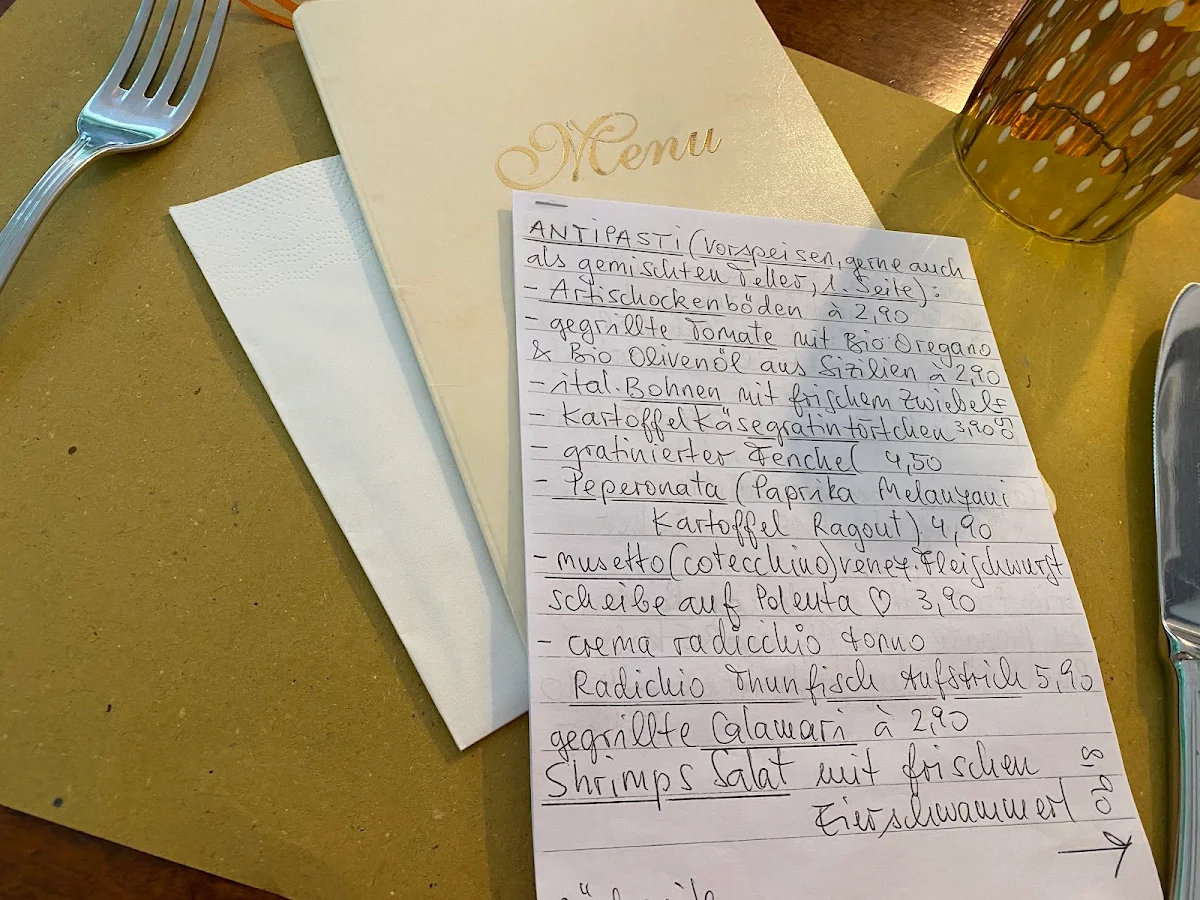 Menu
ANTIPASTI (Vorspeisen, gerne auch
als gemischten Teller, 1 Seite):
- Artischockenböden à 2,90
- gegrillte Tomate mit Bio Oregano
& Bio Olivenöl aus Sizilien à 2,90
- ital. Bohnen mit frischem Zwiebel
- Kartoffelkäsegratintörtchen 3,90
- gratinierter Fenchel 4,50
- Peperonata (Paprika Melanzani
Kartoffel Ragout) 4,90
- musetto (cotecchino) venez. Fleischwurst
scheibe auf Polenta ♡ 3,90
- crema radicchio tonno
Radichio Thunfisch Aufstrich 5,90
gegrillte Calamari à 2,90
Shrimps Salat mit frischen
Eierschwammerl 8,90
→